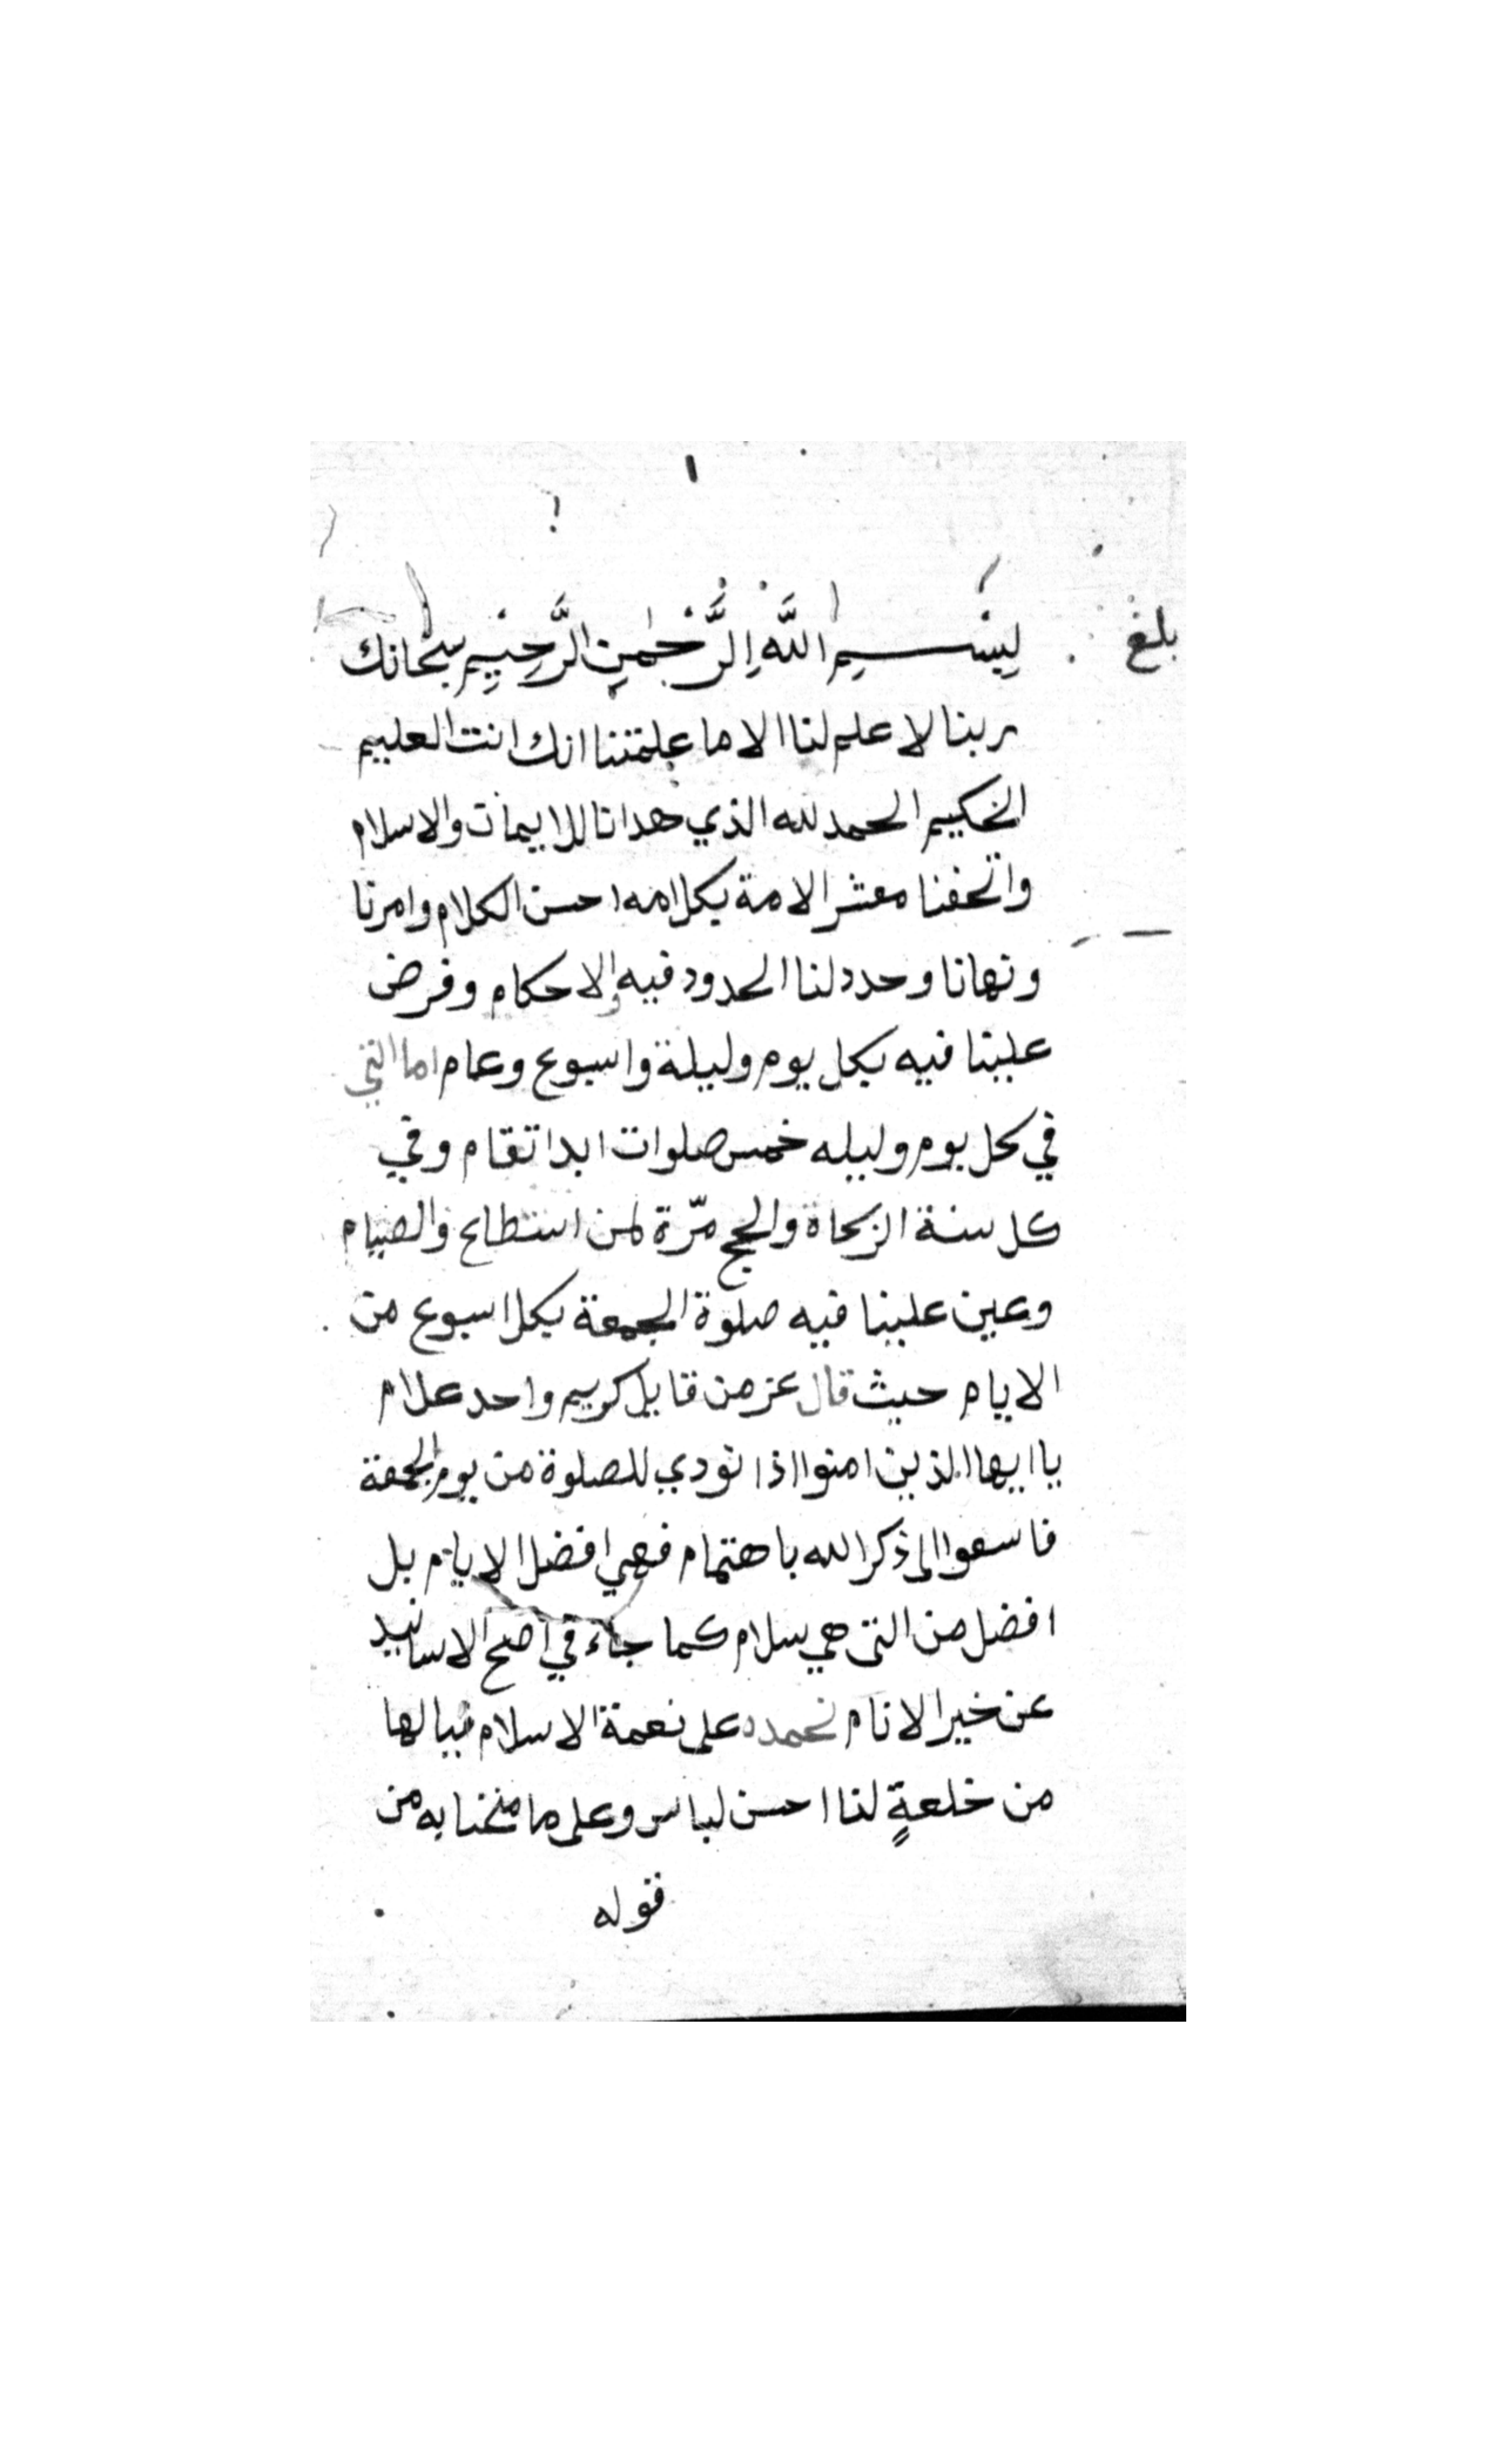 ١
بلغ
بِسْــــمِ اللَّهِ الرَّحْمٰنِ الرَّحِيْمِ سبحانك
ربنا لا علم لنا الا ما علمتنا انك انت العليم
الحكيم الحمد لله الذي هدانا للايمان والاسلام
واتحفنا معشر الامة بكلامه احسن الكلام وامرنا
ونهانا وحدد لنا الحدود فيه والاحكام وفرض
علينا فيه بكل يوم وليلة واسبوع وعام اما التي
في كل يوم وليله خمس صلوات ابدا تقام وفي
كل سنة الزكاة والحج مرّة لمن استطاع والصيام
وعين علينا فيه صلوة الجمعة بكل اسبوع من
الايام حيث قال عز من قايل كريم واحد علام
يا ايها الذين امنوا اذا نودي للصلوة من يوم الجمعة
فاسعوا الى ذكر الله باهتمام فهي افضل الايام بل
افضل من التى هي سلام كما جاء في اصح الاسانيد
عن خير الانام نحمده على نعمة الاسلام فيالها
من خلعةٍ لنا احسن لباس وعلى ما منحنا به من
قوله